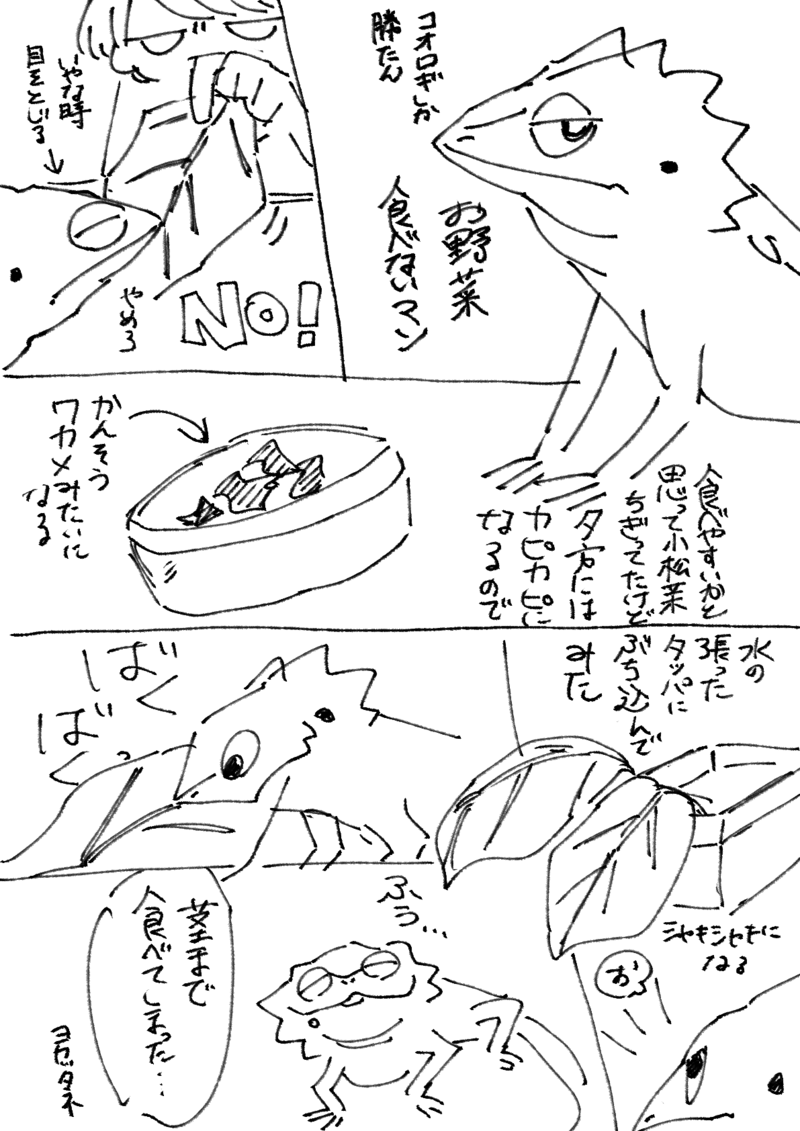 コオロギしか
勝たん
お野菜
食べないマン
いやな時
目をとじる
やめろ
NO!
食べやすいかと
思って小松菜
ちぎってたけど
夕方には
カピカピに
なるので
かんそう
ワカメみたいに
なる
水の
張った
タッパに
ぶち込んで
みた
シャキシャキに
なる
お
ばくっ
ばっ
ふぅ…
茎まで
食べてしまった…
ヨカッタネ